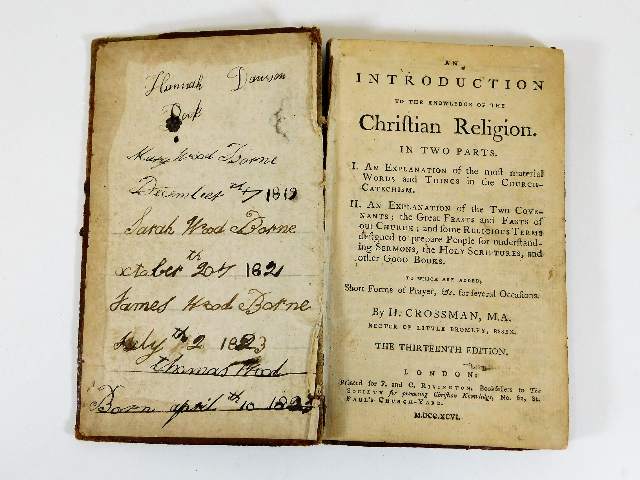 Hannah Dawson
Book
Mary Wood Borne
December th 7 1819
Sarah Wood Borne
october th 20 1821
James Wood Borne
July th 2 1823
Thomas Wood
Born april th 10
AN
INTRODUCTION
TO THE KNOWLEDGE OF THE
Chriſtian Religion.
IN TWO PARTS.
I. AN EXPLANATION of the moſt material
WORDS and THINGS in the CHURCH-
CATECHISM.
II. AN EXPLANATION of the TWO COVE-
NANTS; the Great FEASTS and FASTS of
our CHURCH; and ſome RELIGIOUS TERMS
deſigned to prepare People for underſtand-
ing SERMONS, the HOLY SCRIPTURES, and
other GOOD BOOKS.
TO WHICH ARE ADDED,
Short Forms of Prayer, &c. for ſeveral Occaſions.
By H. CROSSMAN, M.A.
RECTOR OF LITTLE BROMLEY, ESSEX.
THE THIRTEENTH EDITION.
LONDON:
Printed for F. and C. RIVINGTON, Bookſellers to The
SOCIETY for promoting Chriſtian Knowledge, No. 62, St.
PAUL'S CHURCH-YARD.
M.DCC.XCVI.